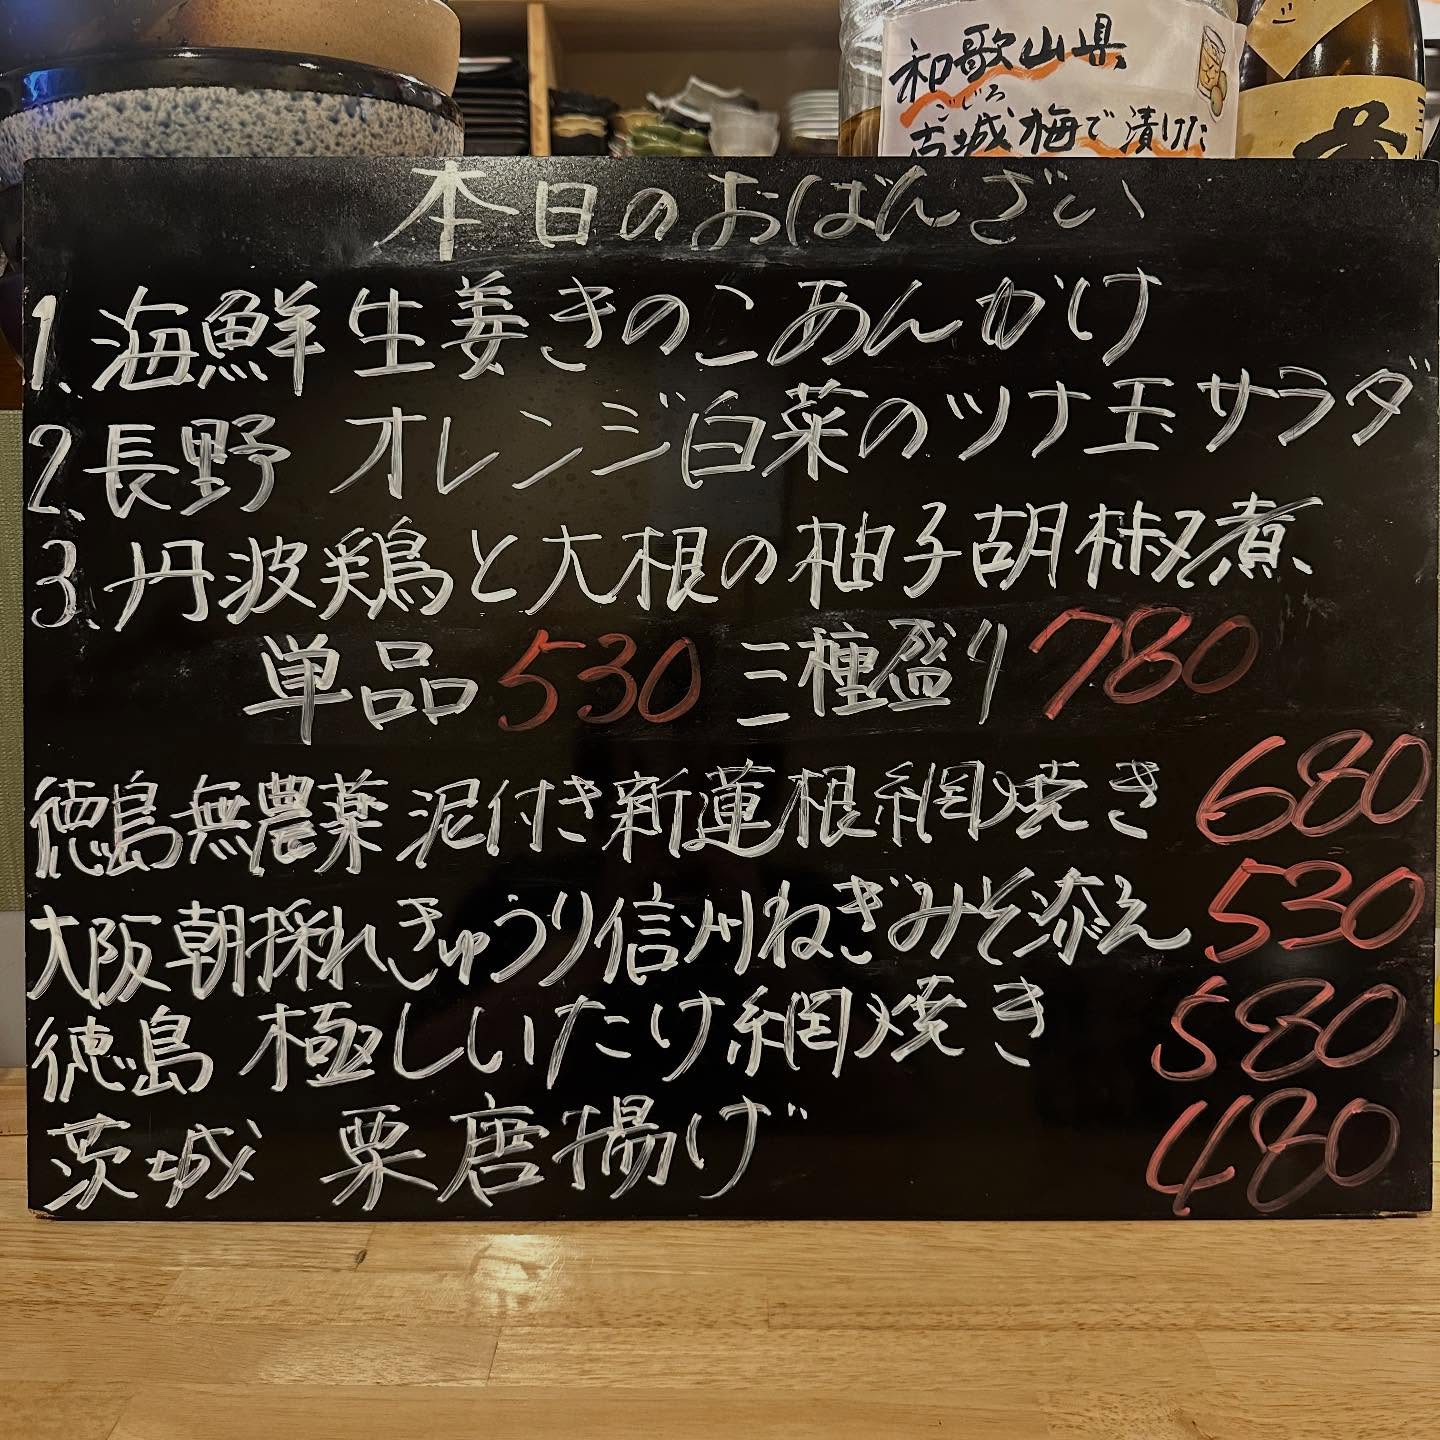 和歌山県
ごじろ
古城梅で漬けた
本日のおばんざい
1. 海鮮生姜きのこあんかけ
2. 長野 オレンジ白菜のツナ玉サラダ
3. 丹波鶏と大根の柚子胡椒煮
単品 530 三種盛り 780
徳島無農薬 泥付き新蓮根網焼き 680
大阪朝採れきゅうり信州ねぎみそ添え 530
徳島 極しいたけ網焼き 580
茨城 栗唐揚げ 480